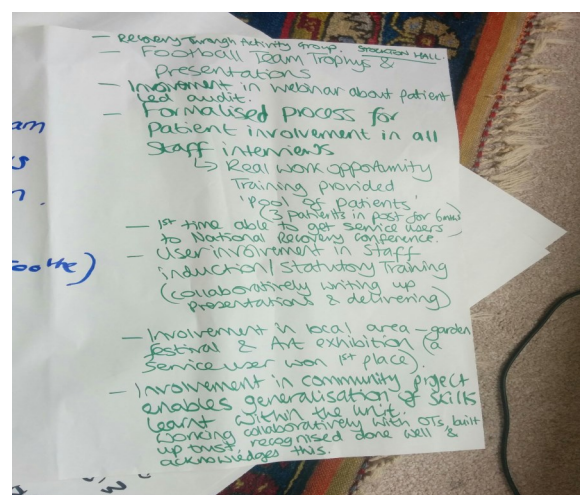 - Recovery Through Activity group. STOCKTON HALL.
- Football Team Trophys &
Presentations
- Involvment in webinar about patient
led audit.
- Formalised process for
Patient involvement in all
Staff interviews
↳ Real work opportunity
Training provided
'Pool of Patients'
(3 patients in post for 6mths)
- 1st time able to get service users
to National Recovery conference.
- User involvement in staff
induction/statutory Training
(collaboratively writing up
presentations & delivering)
- Involvement in local area - garden
festival & Art exhibition (a
Service user won 1st place).
- Involvement in community project
enables generalisation of skills
learnt within the unit.
Working collaboratively with OTs, built
up trust, recognised done well &
acknowledges this.
am
s
n.